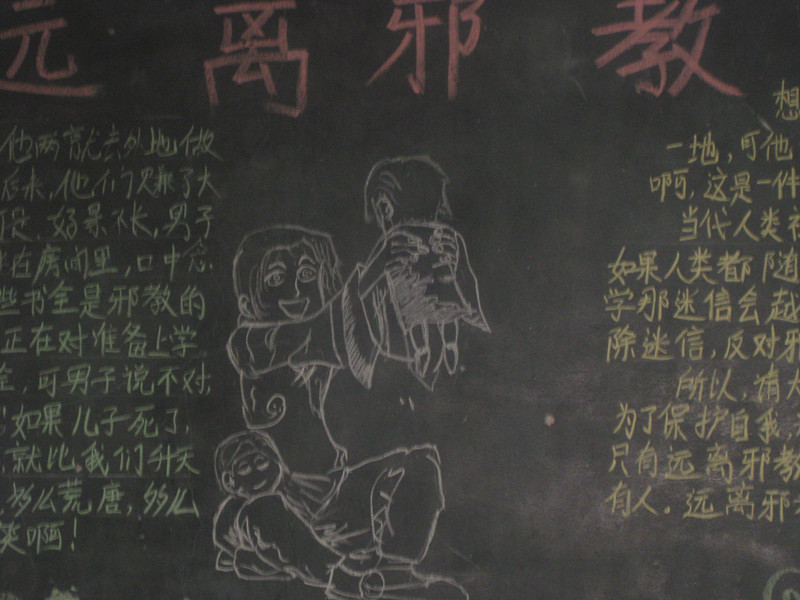 远离邪教
他两就去外地做
后来,他们赚了大
好景不长,男子
在房间里,口中念
些书全是邪教的
正在对准备上学
可男子说不对,
如果儿子死了,
就比我们升天
多么荒唐,多么
笑啊!
想
一地,可他
啊,这是一件
当代人类社
如果人类都随
学那迷信会越
除迷信,反对邪
所以,请大
为了保护自我,
只有远离邪教
有人。远离邪